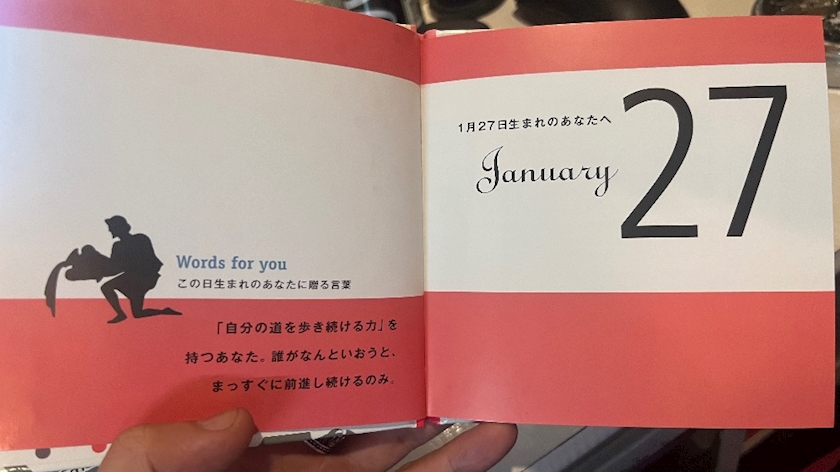 Words for you
この日生まれのあなたに贈る言葉
「自分の道を歩き続ける力」を
持つあなた。誰がなんといおうと、
まっすぐに前進し続けるのみ。
1月27日生まれのあなたへ
January
27